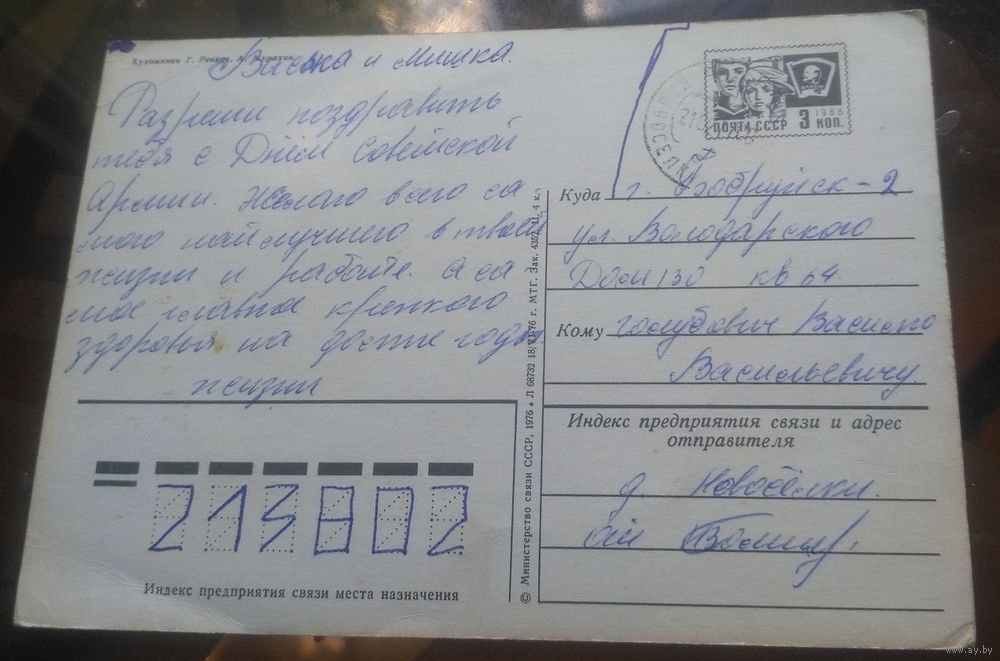 Художники Г. Ренков, А.
Васька и Мишка.
Разреши поздравить
тебя с Днём Советской
Армии. Желаю всего са
мого найлучшего в твоей
жизни и работе. а са
мое главное крепкого
здоровья на долгие годы
жизни
213802
Индекс предприятия связи места назначения
© Министерство связи СССР, 1976 • Л 68732 18/VI-76 г. МТГ. Зак. 4352. Ц. 4 к.
ПОЧТА СССР 1966 3 КОП.
Куда г. Бобруйск-2
ул. Володарского
Дом 130 кв 64.
Кому Голубович Василию
Васильевичу.
Индекс предприятия связи и адрес
отправителя
д. Новосёлки.
от
www.ay.by